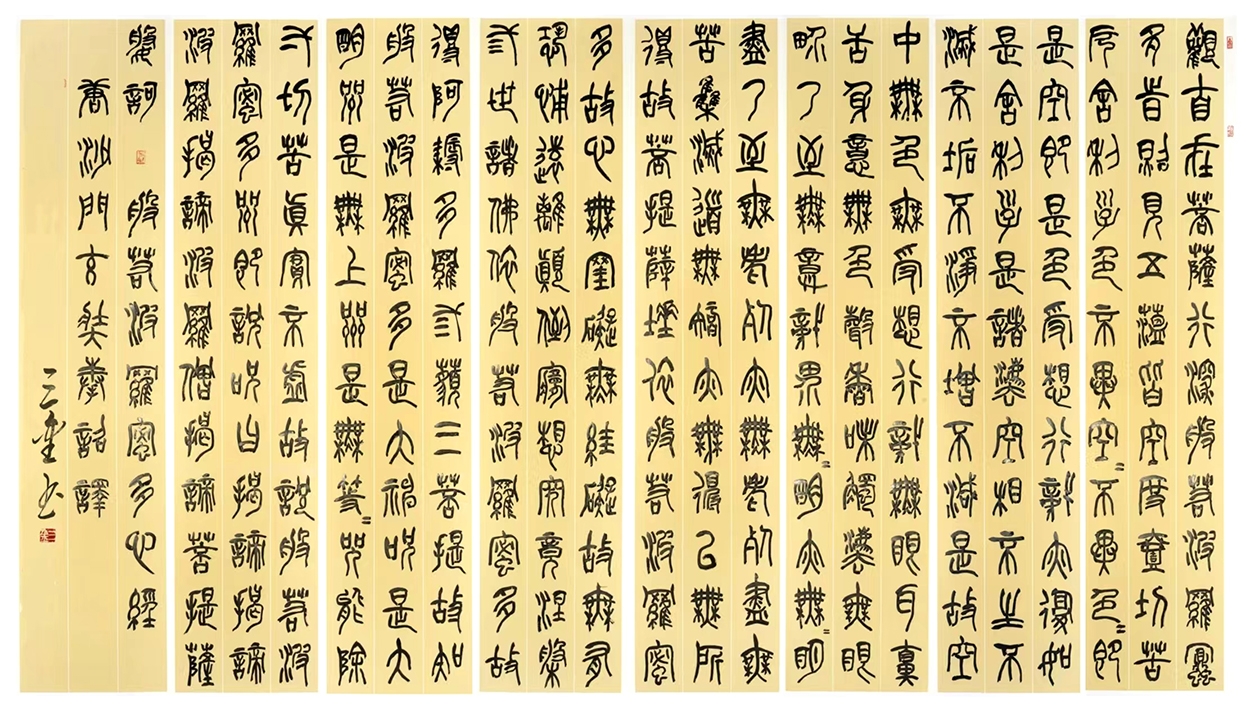 觀自在菩薩行深般若波羅蜜
多時照見五蘊皆空度壹切苦
厄舍利子色不異空〻不異色〻即
是空即是色受想行識亦復如
是舍利子是諸法空相不生不
滅不垢不淨不增不減是故空
中無色無受想行識無眼耳鼻
舌身意無色聲香味觸法無眼
界乃至無意識界無〻明亦無〻明
盡乃至無老死亦無老死盡無
苦集滅道無智亦無得以無所
得故菩提薩埵依般若波羅蜜
多故心無罣礙無罣礙故無有
恐怖遠離顛倒夢想究竟涅槃
三世諸佛依般若波羅蜜多故
得阿耨多羅三藐三菩提故知
般若波羅蜜多是大神咒是大
明咒是無上咒是無等〻咒能除
一切苦真實不虛故說般若波
羅蜜多咒即說咒曰揭諦揭諦
波羅揭諦波羅僧揭諦菩提薩
婆訶 般若波羅蜜多心經
唐沙門玄奘奉詔譯